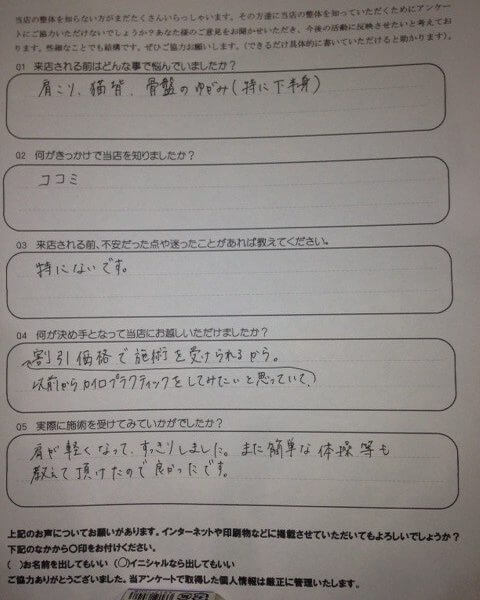 当店の整体を知らない方がまだたくさんいらっしゃいます。その方達に当店の整体を知っていただくためにアンケー
トにご協力いただけないでしょうか？あなた様のご意見をお聞かせいただき、今後の活動に反映させたいと考えてお
ります。些細なことでも結構です。ぜひご協力お願いします。（できるだけ具体的に書いていただけると助かります）。
Q1 来店される前はどんな事で悩んでいましたか？
肩こり、猫背、骨盤のゆがみ(特に下半身)
Q2 何がきっかけで当店を知りましたか？
ココミ
Q3 来店される前、不安だった点や迷ったことがあれば教えてください。
特にないです。
Q4 何が決め手となって当店にお越しいただけましたか？
割引価格で施術を受けられるから。
以前からカイロプラクティックをしてみたいと思っていて、
Q5 実際に施術を受けてみていかがでしたか？
肩が軽くなって、すっきりしました。また簡単な体操等も
教えて頂けたので良かったです。
上記のお声についてお願いがあります。インターネットや印刷物などに掲載させていただいてもよろしいでしょうか？
下記のなかから〇印をお付けください。
（ ）お名前を出してもいい （〇）イニシャルなら出してもいい
ご協力ありがとうございました。当アンケートで取得した個人情報は厳正に管理いたします。